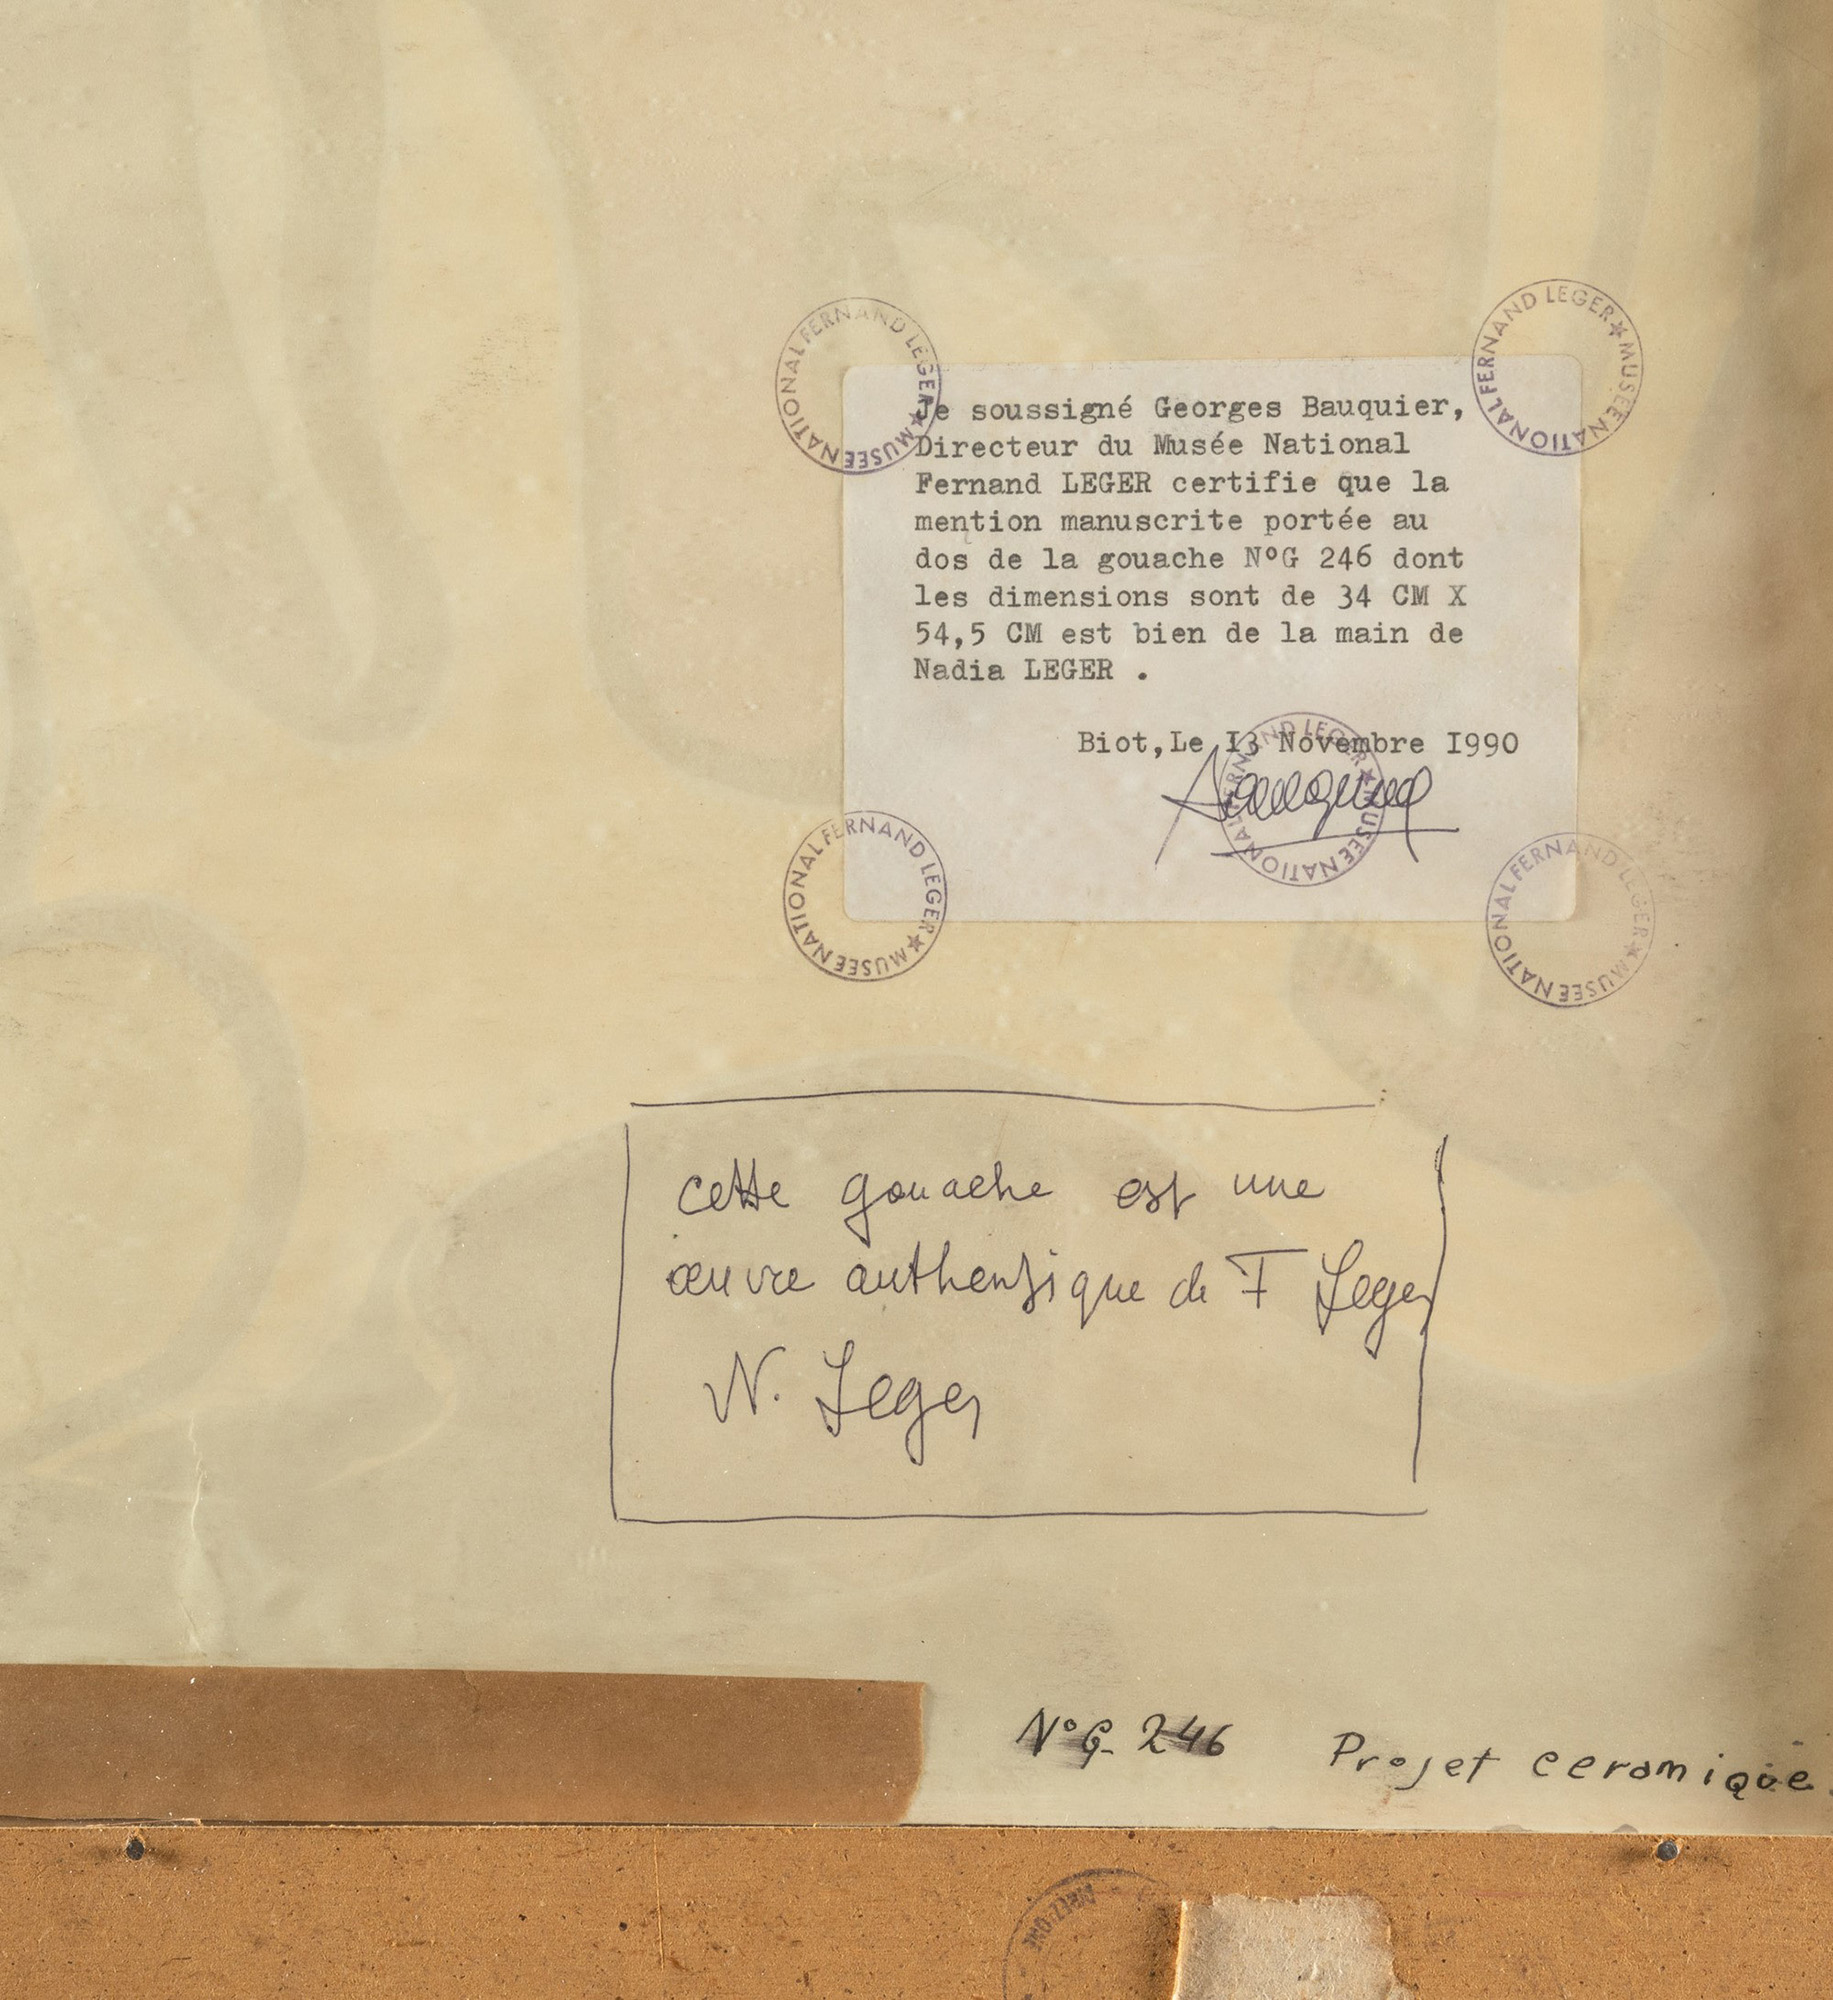 FERNAND LEGER ★ MUSEE NATIONAL
FERNAND LEGER ★ MUSEE NATIONAL
Je soussigné Georges Bauquier,
Directeur du Musée National
Fernand LEGER certifie que la
mention manuscrite portée au
dos de la gouache N°G 246 dont
les dimensions sont de 34 CM X
54,5 CM est bien de la main de
Nadia LEGER .
Biot,Le I3 Novembre I990
FERNAND LEGER ★ MUSEE NATIONAL
FERNAND LEGER ★ MUSEE NATIONAL
FERNAND LEGER ★ MUSEE NATIONAL
cette gouache est une
œuvre authentique de F Leger
N. Leger
N°G 246 Projet ceramique